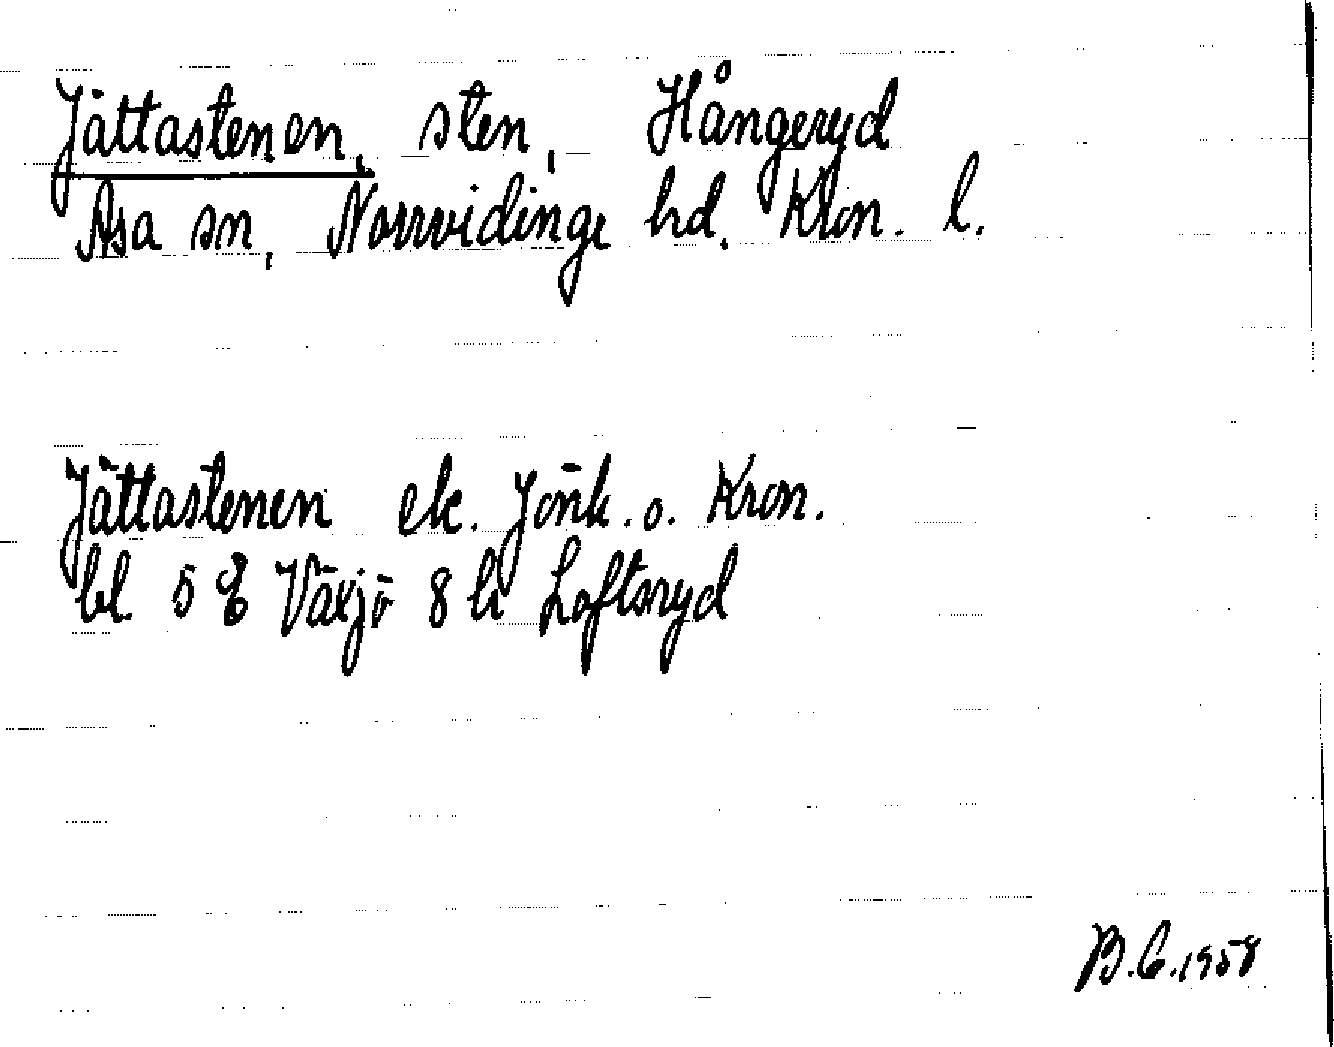 Jättastenen, sten, Hångeryd
Asa sn, Norrvidinge hd. Kron. l.
Jättastenen ek. Jönk. o. Kron.
bl 5 E Växjö 8 h Loftsryd
B.C. 1958